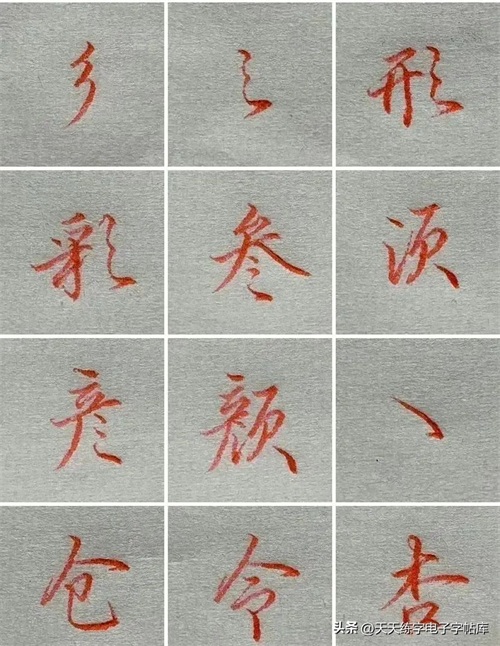 彡 形
彩 参 须
彦 颜
仓 令 杏
头条 @天天练字电子字帖库